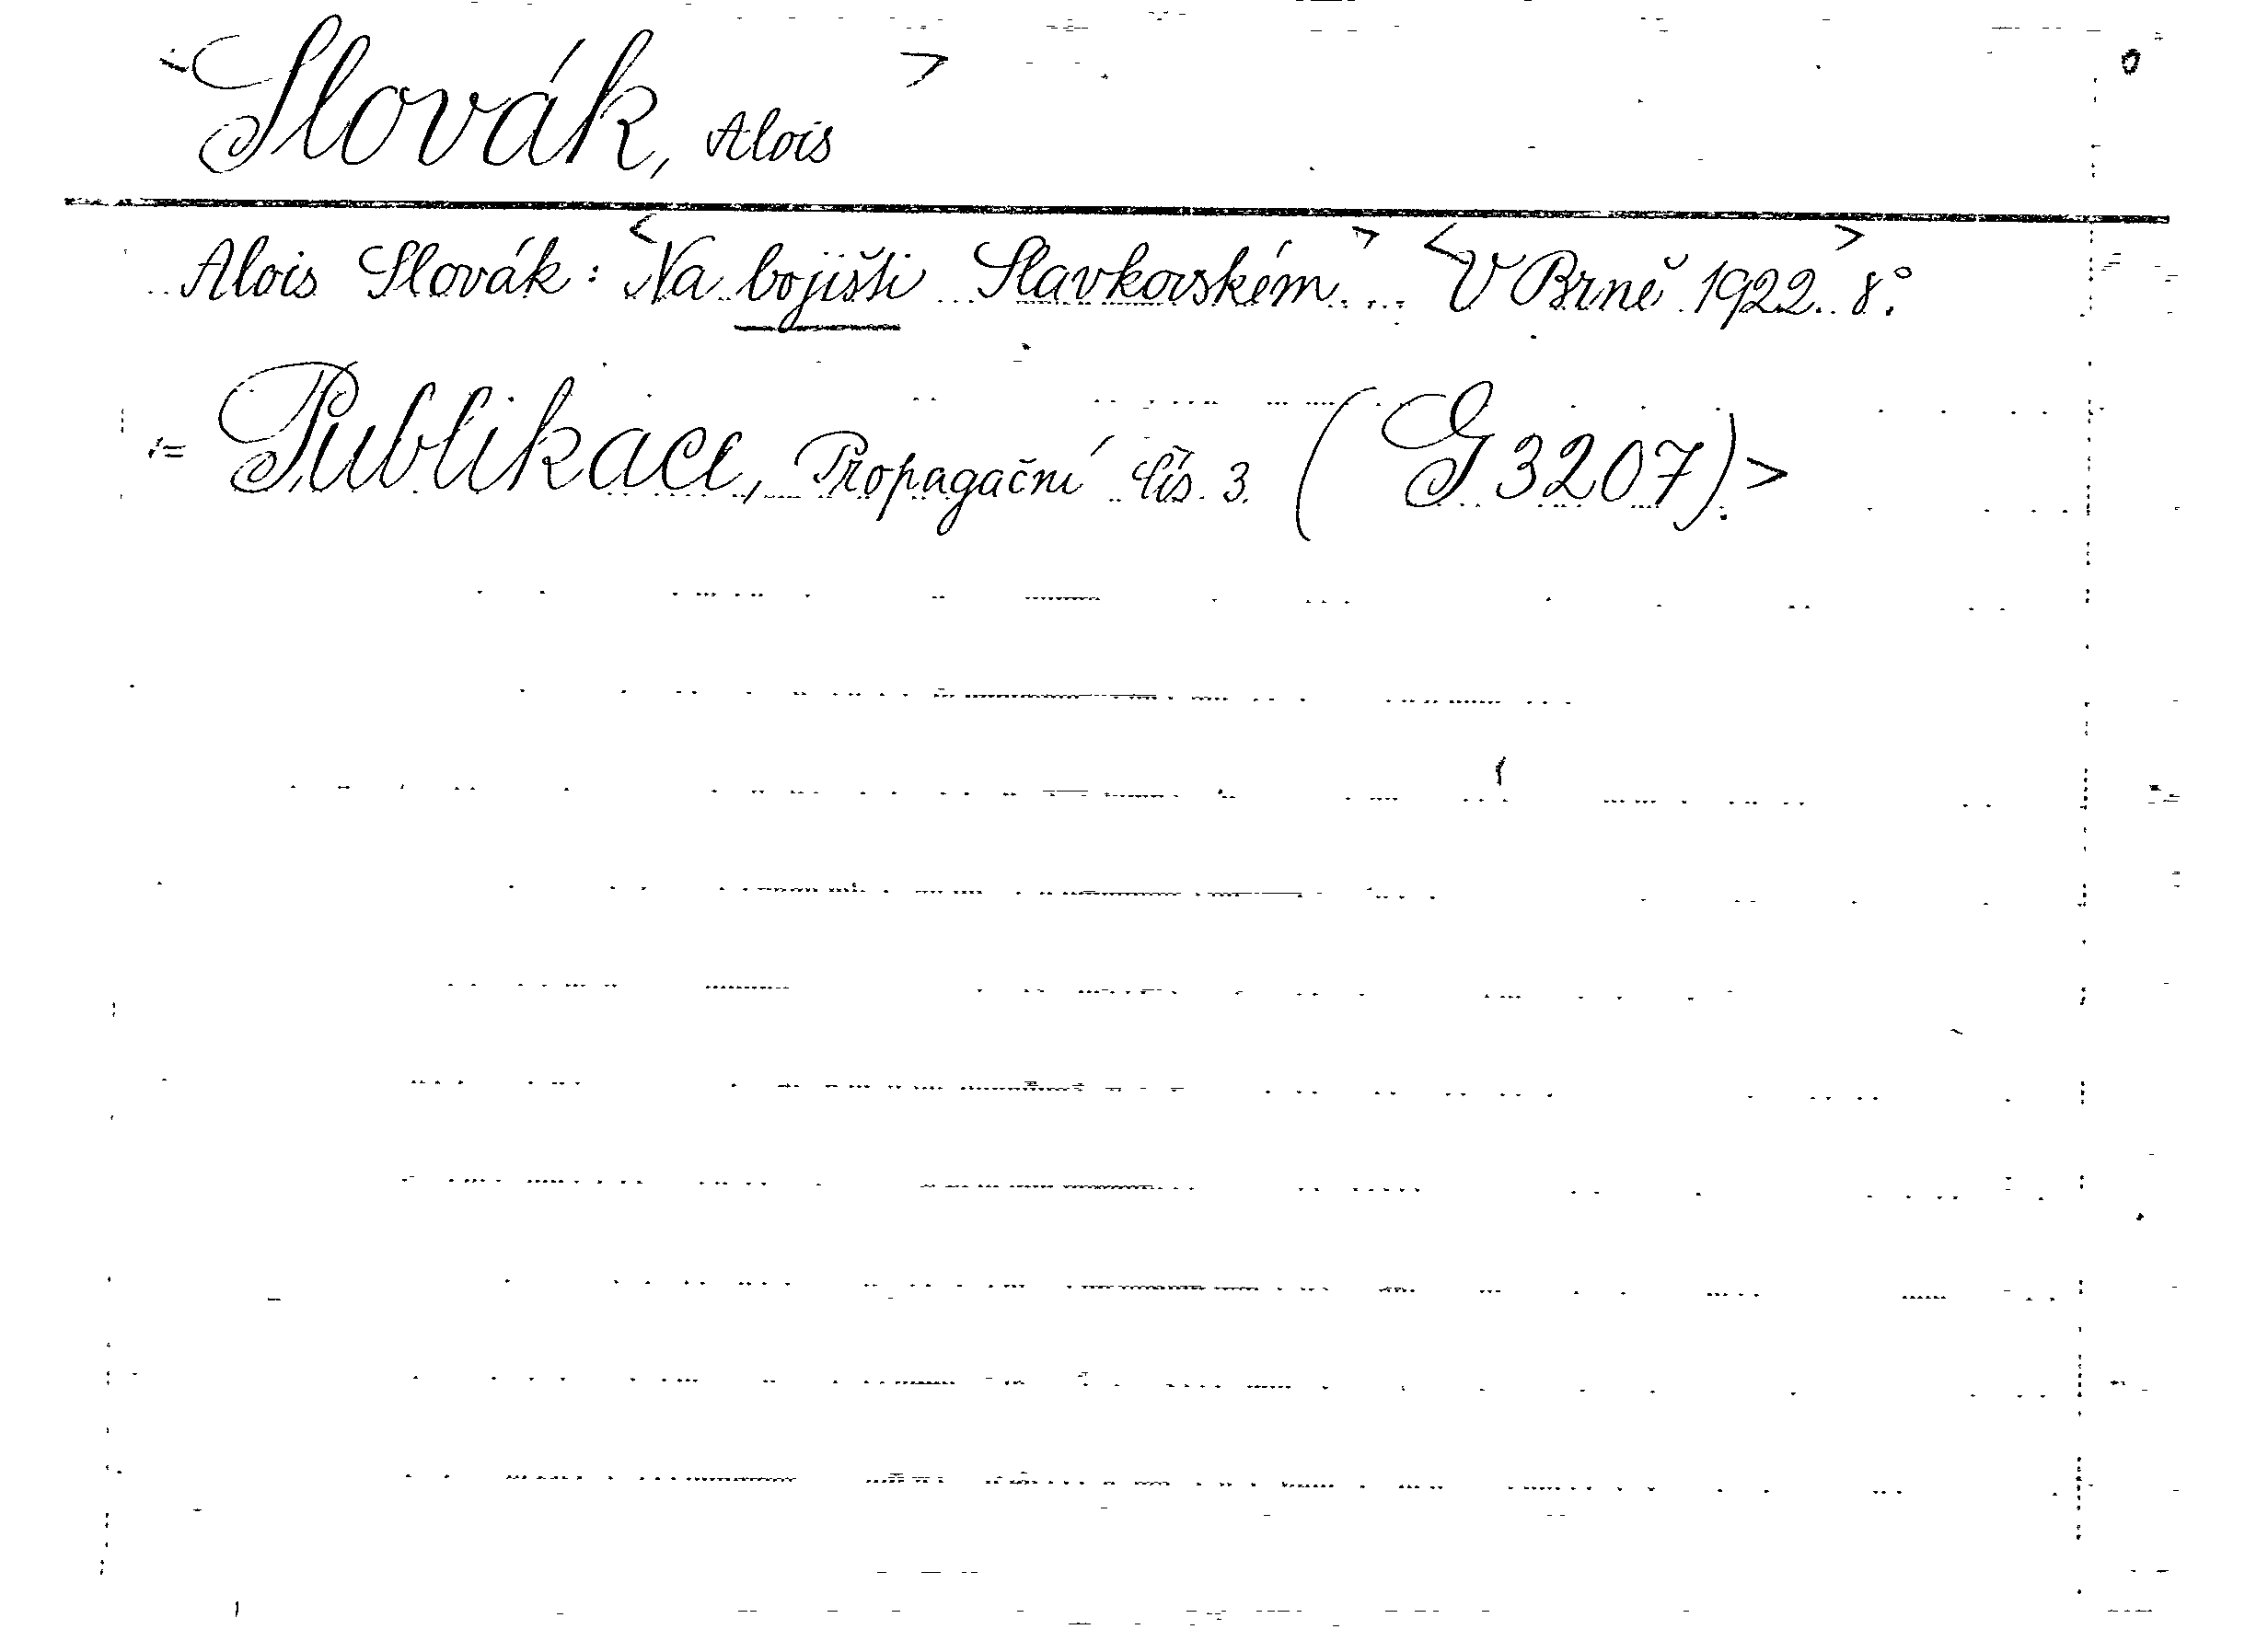 <Slovák, Alois> o
Alois Slovák: <Na bojišti Slavkovském...> <V Brně 1922. 8°.>
<= Publikace, Propagační čís. 3. (G 3207).>